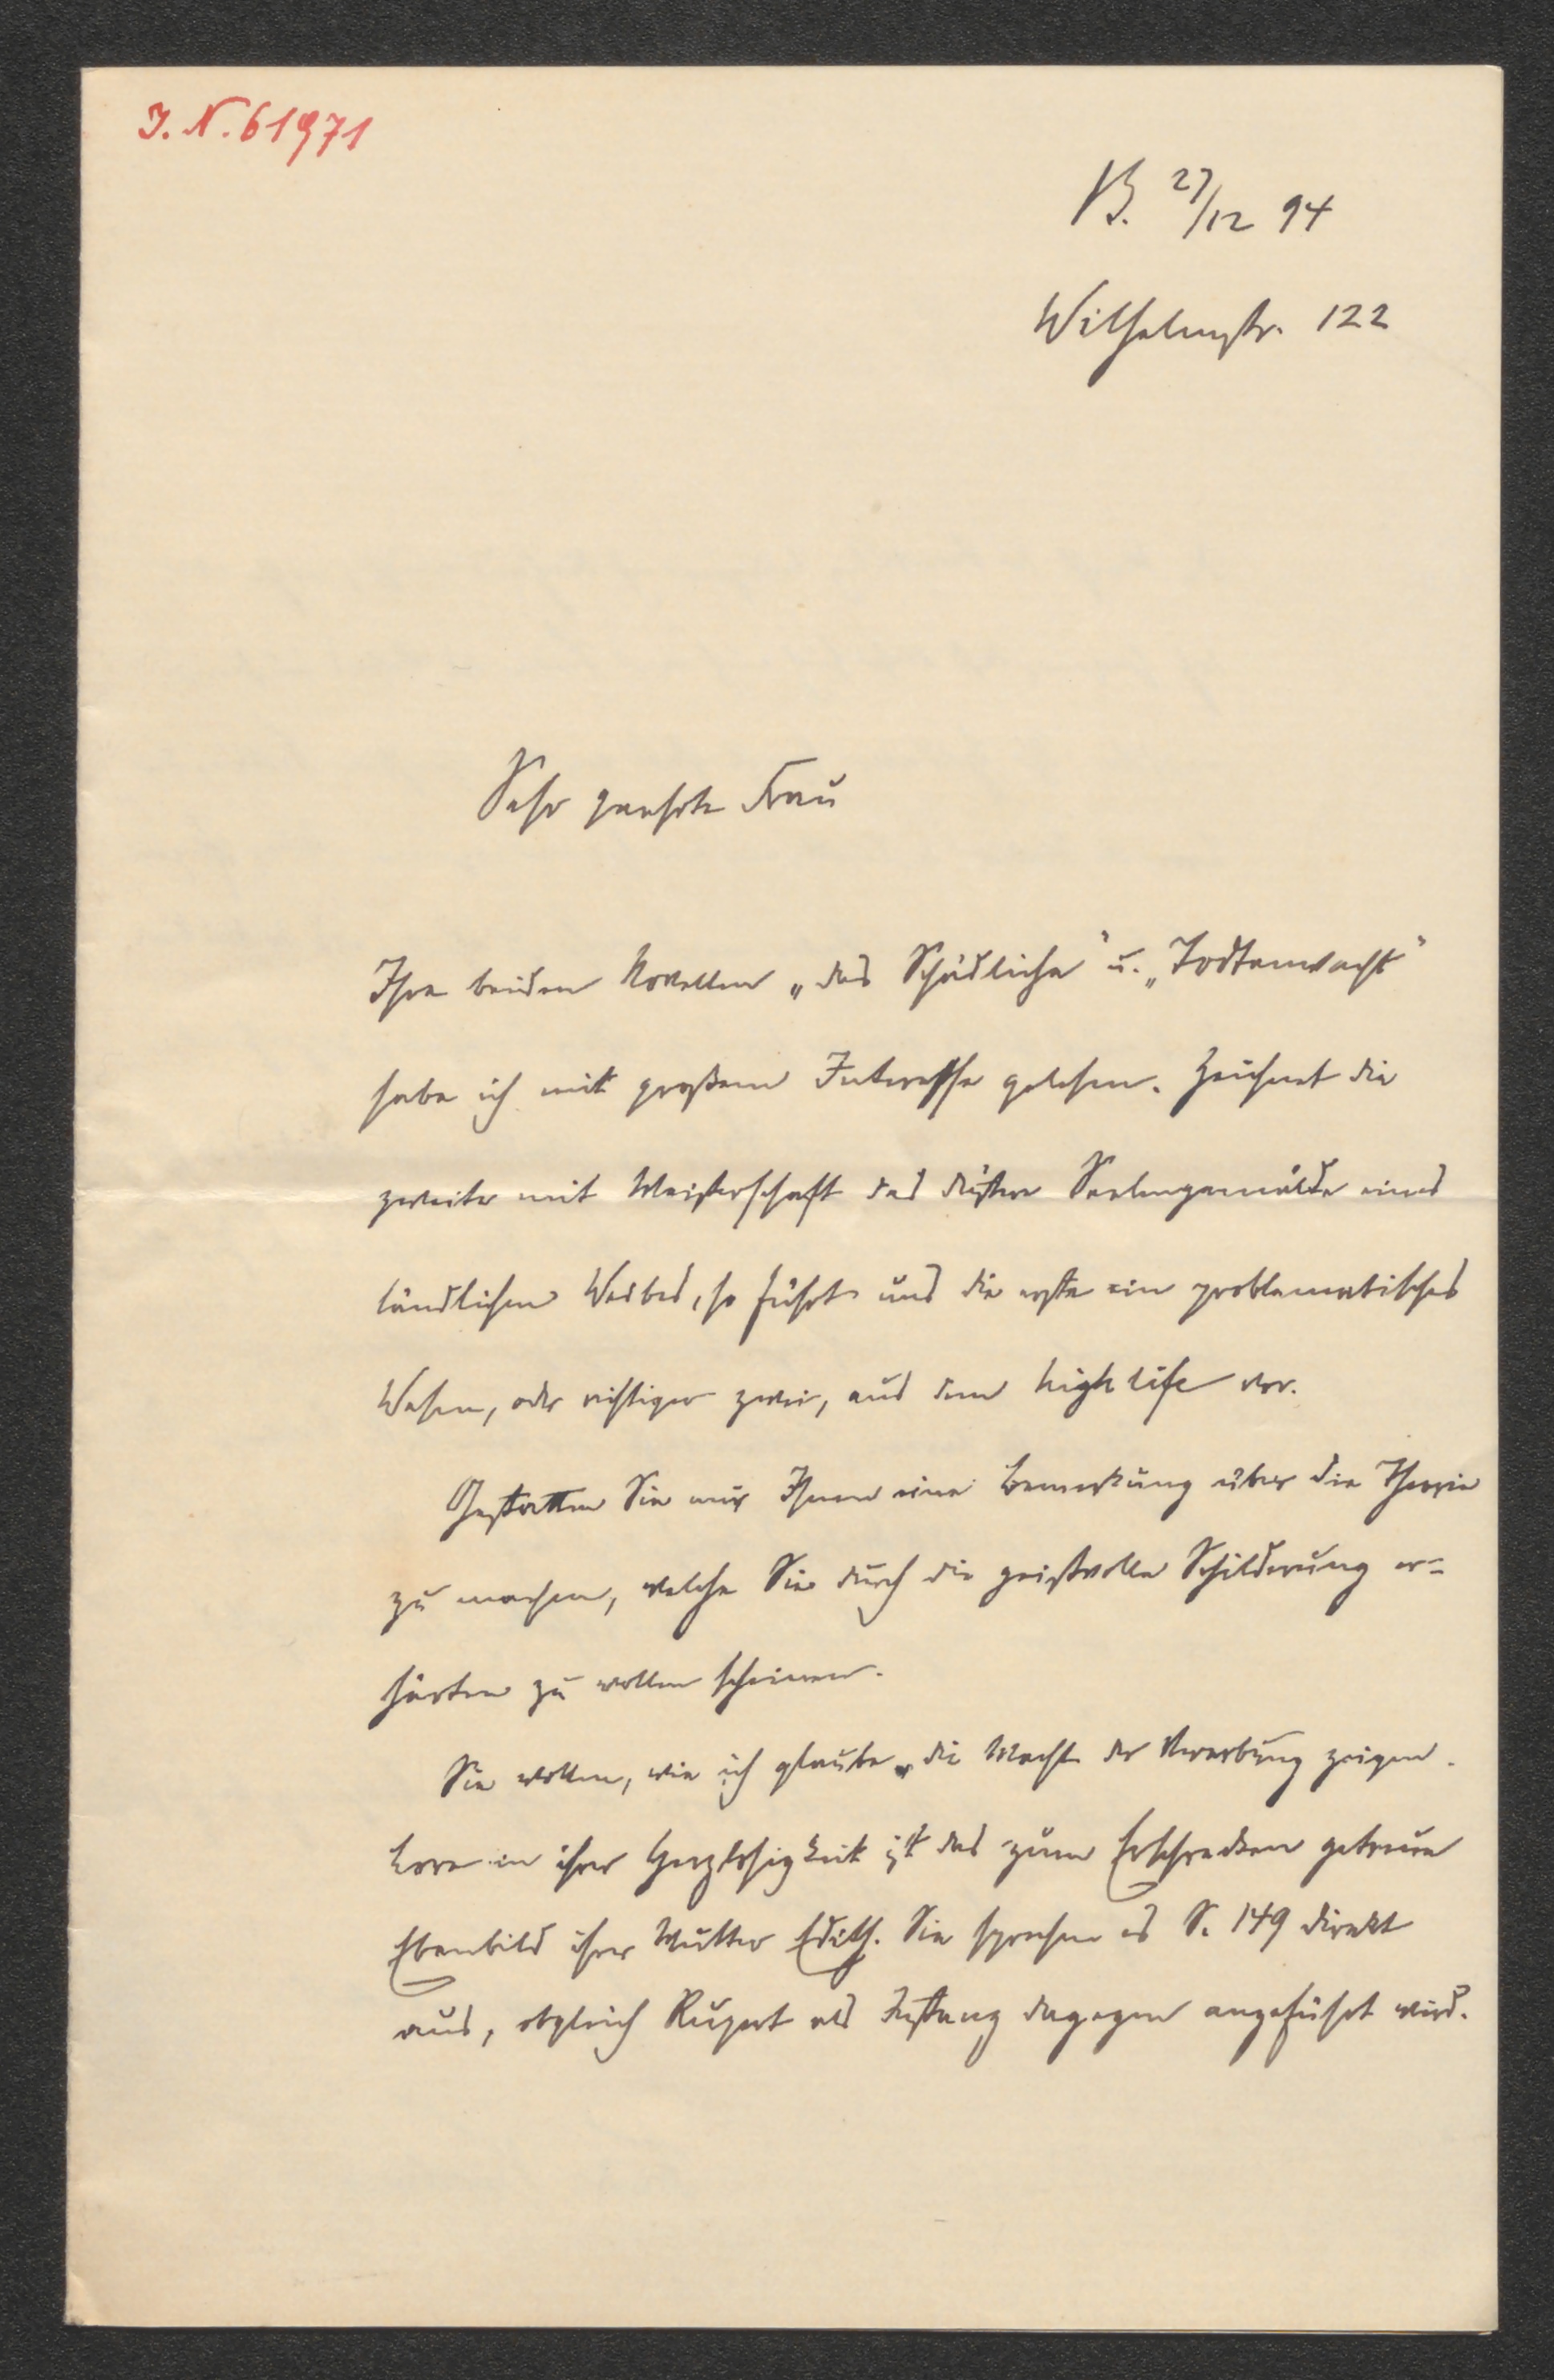 J. N. 61971
B. 27/12 94
Wilhelmstr. 122
Sehr geehrte Frau
Ihre beiden Novellen „das Schädliche" u. „Todtenwacht"
habe ich mit großem Interesse gelesen. Zeichnet die
zweite mit Meisterschaft das düstere Seelengemälde eines
ländlichen Weibes, so führt uns die erste ein problematisches
Wesen, oder richtiger zwei, aus dem high life vor.
Gestatten Sie mir Ihnen eine Bemerkung über die Theorie
zu machen, welche Sie durch die geistvolle Schilderung er-
härten zu wollen scheinen.
Sie wollen, wie ich glaube, die Macht der Vererbung zeigen.
Lore in ihrer Herzlosigkeit ist das zum Erschrecken getreue
Ebenbild ihrer Mutter Edith. Sie sprechen es S. 149 direkt
aus, obgleich Rupert als Instanz dagegen angeführt wird.